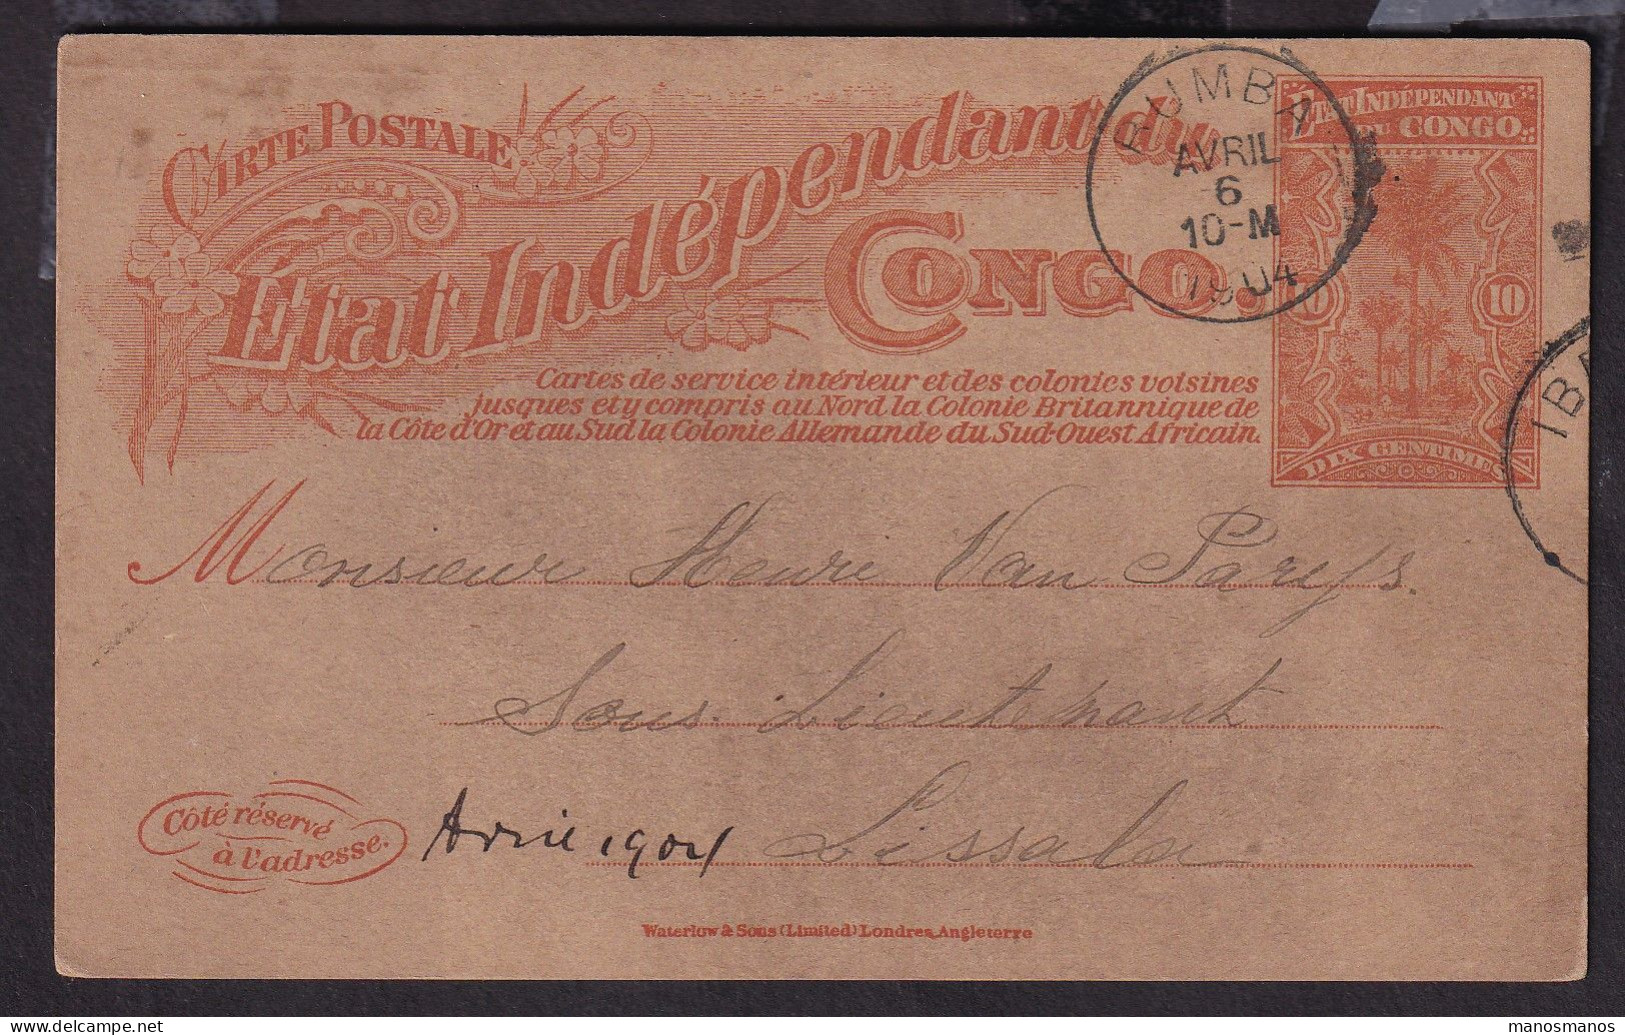 CARTE POSTALE
État Indépendant du
CONGO.
Cartes de service intérieur et des colonies voisines
jusques et y compris au Nord la Colonie Britannique de
la Côte d'Or et au Sud la Colonie Allemande du Sud-Ouest Africain.
UMBA
AVRIL
6
10-M
1904
ÉTAT INDÉPENDANT
DU CONGO
10
DIX CENTIMES
IB
Monsieur Henri Van Parijs.
Sous. Lieutenant
Côté réservé
à l'adresse.
Avril 1904 Lissala
Waterlow & Sons (Limited) Londres, Angleterre
manosmanos